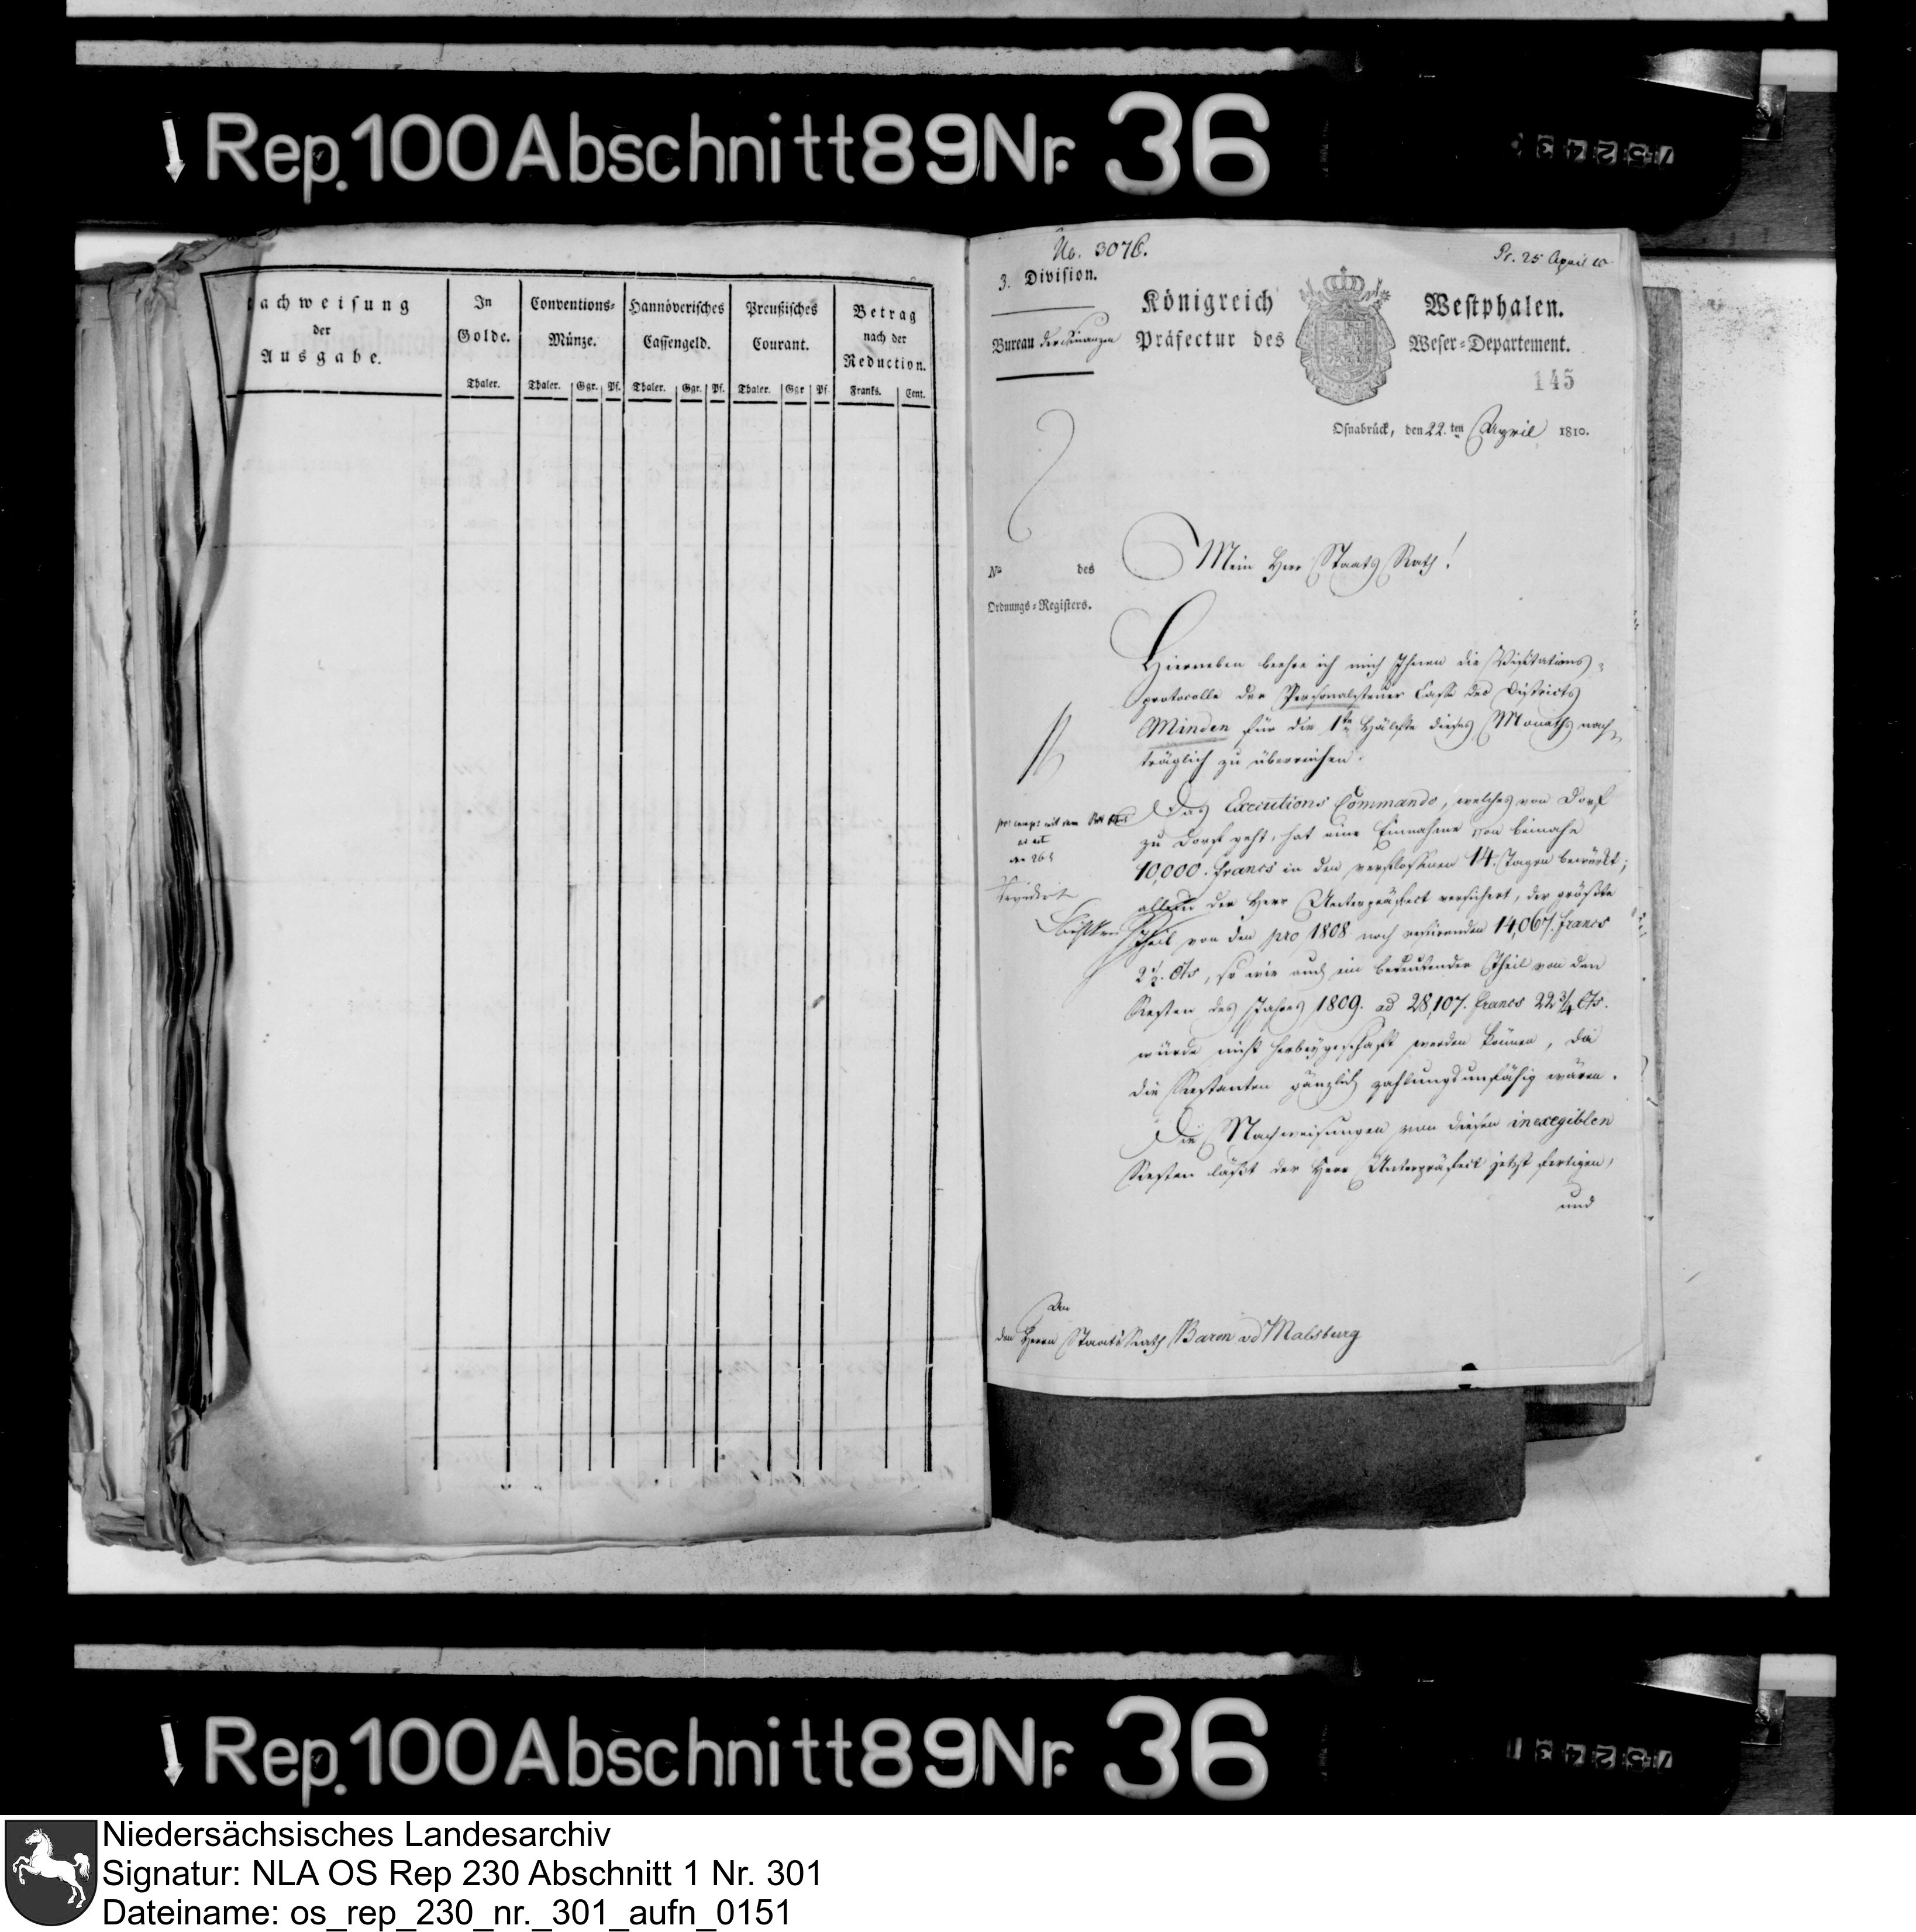 Rep. 100 Abschnitt 89 Nr. 36
Nachweisung
der
Ausgabe.
In
Golde.
Thaler.
Conventions-
Münze.
Thaler. Ggr. Pf.
Hannöverisches
Cassengeld.
Thaler. Ggr. Pf.
Preußisches
Courant.
Thaler. Ggr Pf
Betrag
nach der
Reduction.
Franks. Cent.
No. 3076.
Pr. 25 April 10
3. Division.
Bureau der Finanzen
Königreich Westphalen.
Präfectur des Weser-Departement.
145
Osnabrück, den 22.ten April 1810.
Mein Herr Staats Rath!
No des
Ordnungs-Registers.
Hierneben beehre ich mich Ihnen die Visitations-
protocolle der Personalsteuer Casse des Districts
Minden für die 1te Hälfte dieses Monaths nach-
träglich zu überreichen.
Das Executions Commando, welches von Dorf
zu Dorf geht, hat eine Einnahme von beinahe
10,000. francs in den verflossenen 14. Tagen bewürkt;
allein der Herr Unterpräfect versichert, der größte
Theil von den pro 1808 noch restirenden 14,067. francs
2 1/2. Cts, so wie auch ein bedeutender Theil von den
Resten des Jahres 1809. ad 28,107. francs 22 3/4 Cts.
würde nicht herbeygeschaft werden können, da
die Restanten gänzlich zahlungsunfähig wären.
Die Nachweisungen von diesen inexegiblen
Resten läßt der Herr Unterpräfect jetzt fertigen,
und
revidirt
An
den Herrn Staats Rath Baron v d Malsburg
Rep. 100 Abschnitt 89 Nr. 36
Niedersächsisches Landesarchiv
Signatur: NLA OS Rep 230 Abschnitt 1 Nr. 301
Dateiname: os_rep_230_nr._301_aufn_0151